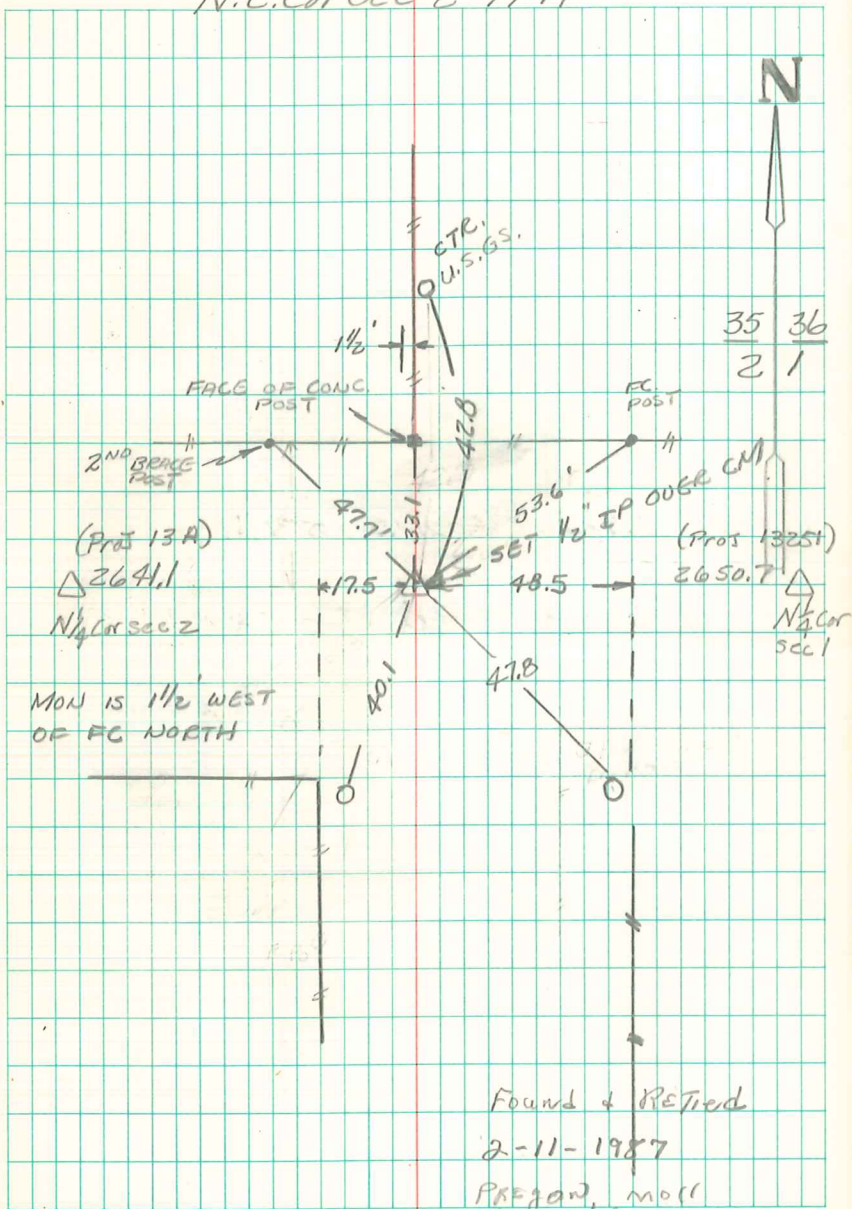 N
CTR.
U.S.GS.
1½'
35 36
2 1
FACE OF CONC.
POST
FC.
POST
2ND BRACE
POST
42.8
47.7'
33.1
53.6'
SET ½" IP OVER CM
(Proj 13A)
△ 2641.1
N¼ Cor sec 2
17.5
48.5
(Proj 13251)
2650.7 △
N¼ Cor
sec 1
40.1
47.8
MON IS 1½' WEST
OF FC NORTH
Found & RETied
2-11-1987